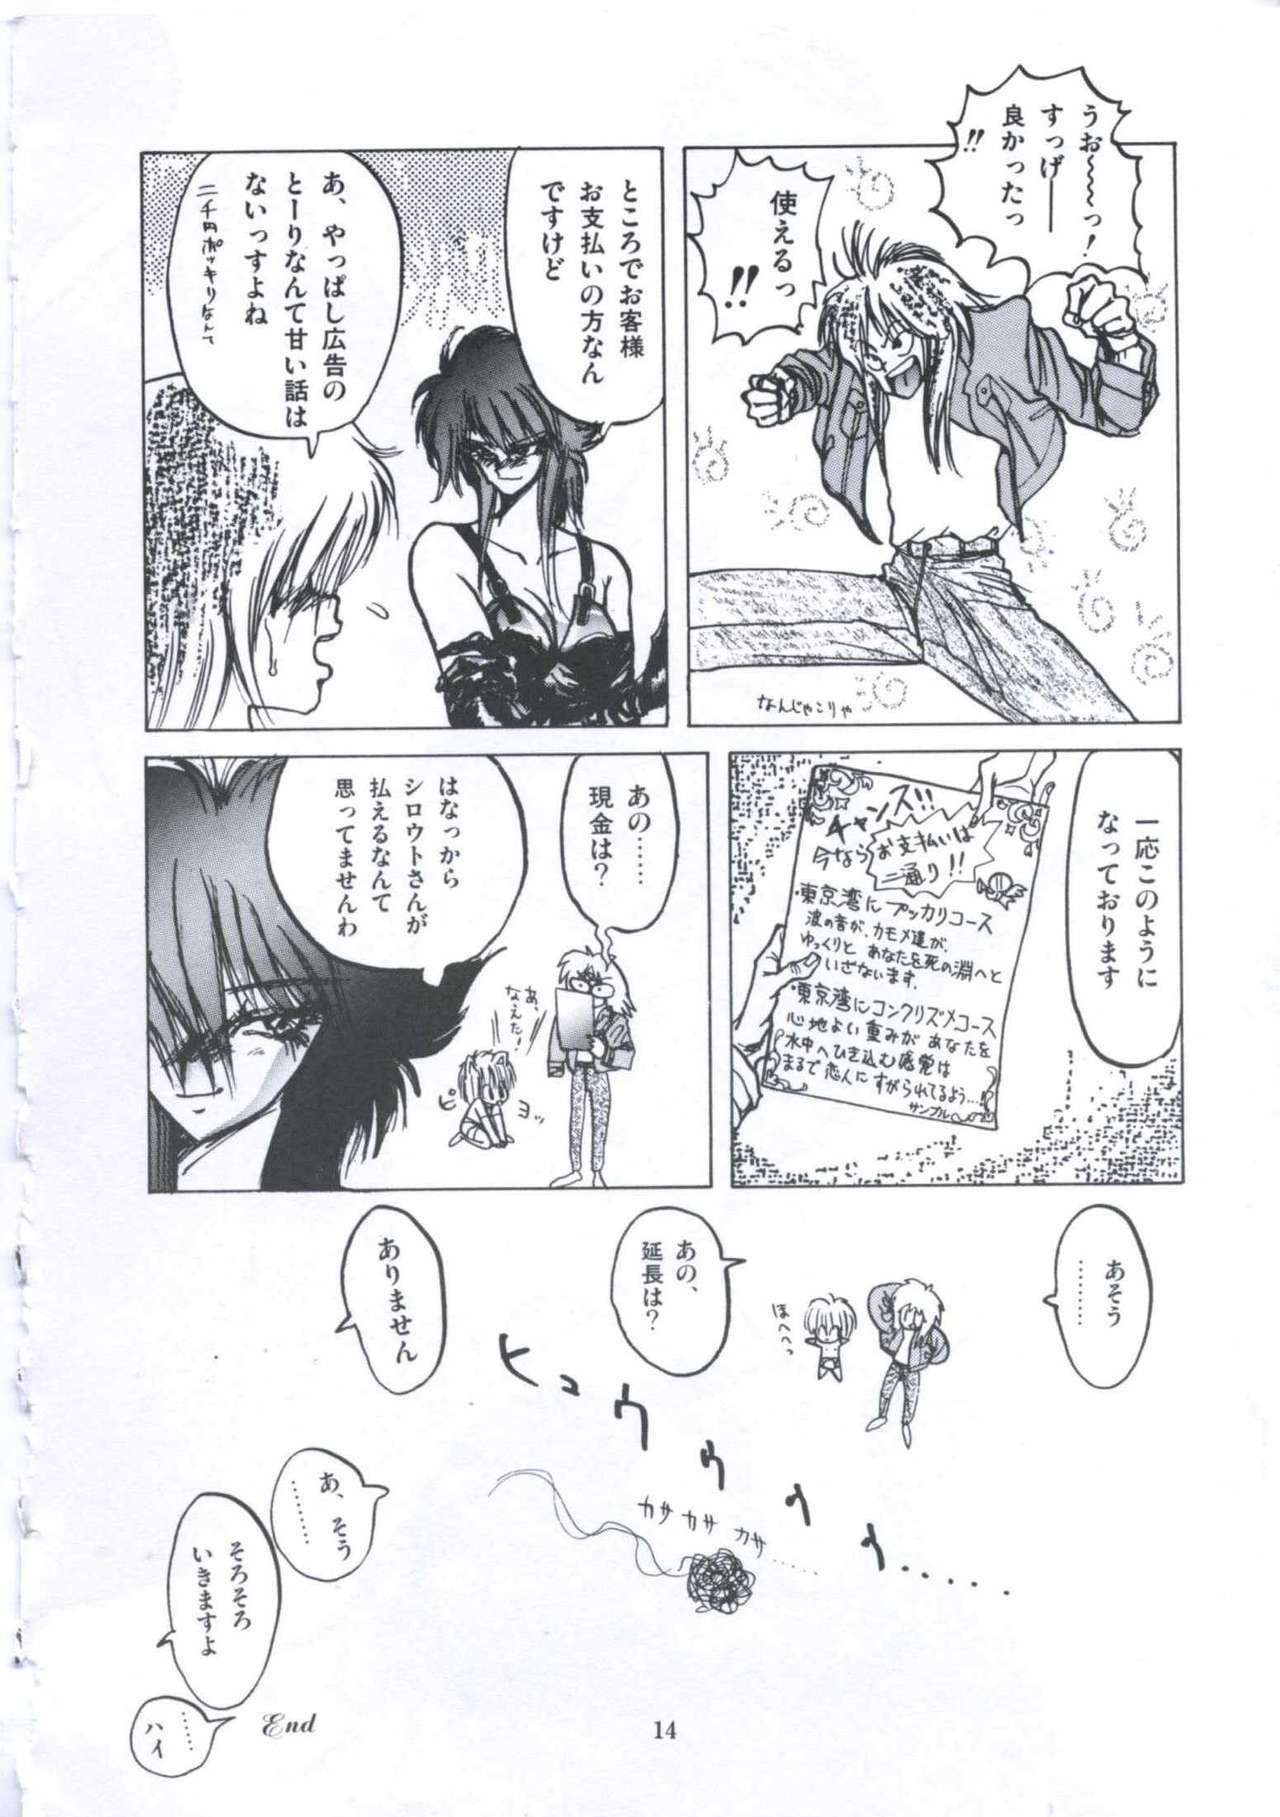 うお〜〜〜っ!
すっげ——
良かったっ
!!
使えるっ
!!
なんじゃこりゃ
ところでお客様
お支払いの方なん
ですけど
あ、やっぱし広告の
とーりなんて甘い話は
ないっすよね
二千円ポッキリなんて
一応このように
なっております
チャンス!!
今なら
お支払いは
二通り!!
・東京湾にプッカリコース
波の音が、カモメ達が、
ゆっくりと あなたを死の淵へと
いざないます。
・東京湾にコンクリズメコース
心地よい重みが あなたを
水中へひき込む感覚は
まるで恋人にすがられてるよう…!
サンプル
あの……
現金は?
あ、
なえた!
ピ ヨッ
はなっから
シロウトさんが
払えるなんて
思ってませんわ
あそう
………
ほへへっ
あの、
延長は?
ありません
ヒュウウウゥゥ......
カサ カサ カサ……
あ、そう
………
そろそろ
いきますよ
……
ハイ
End
14